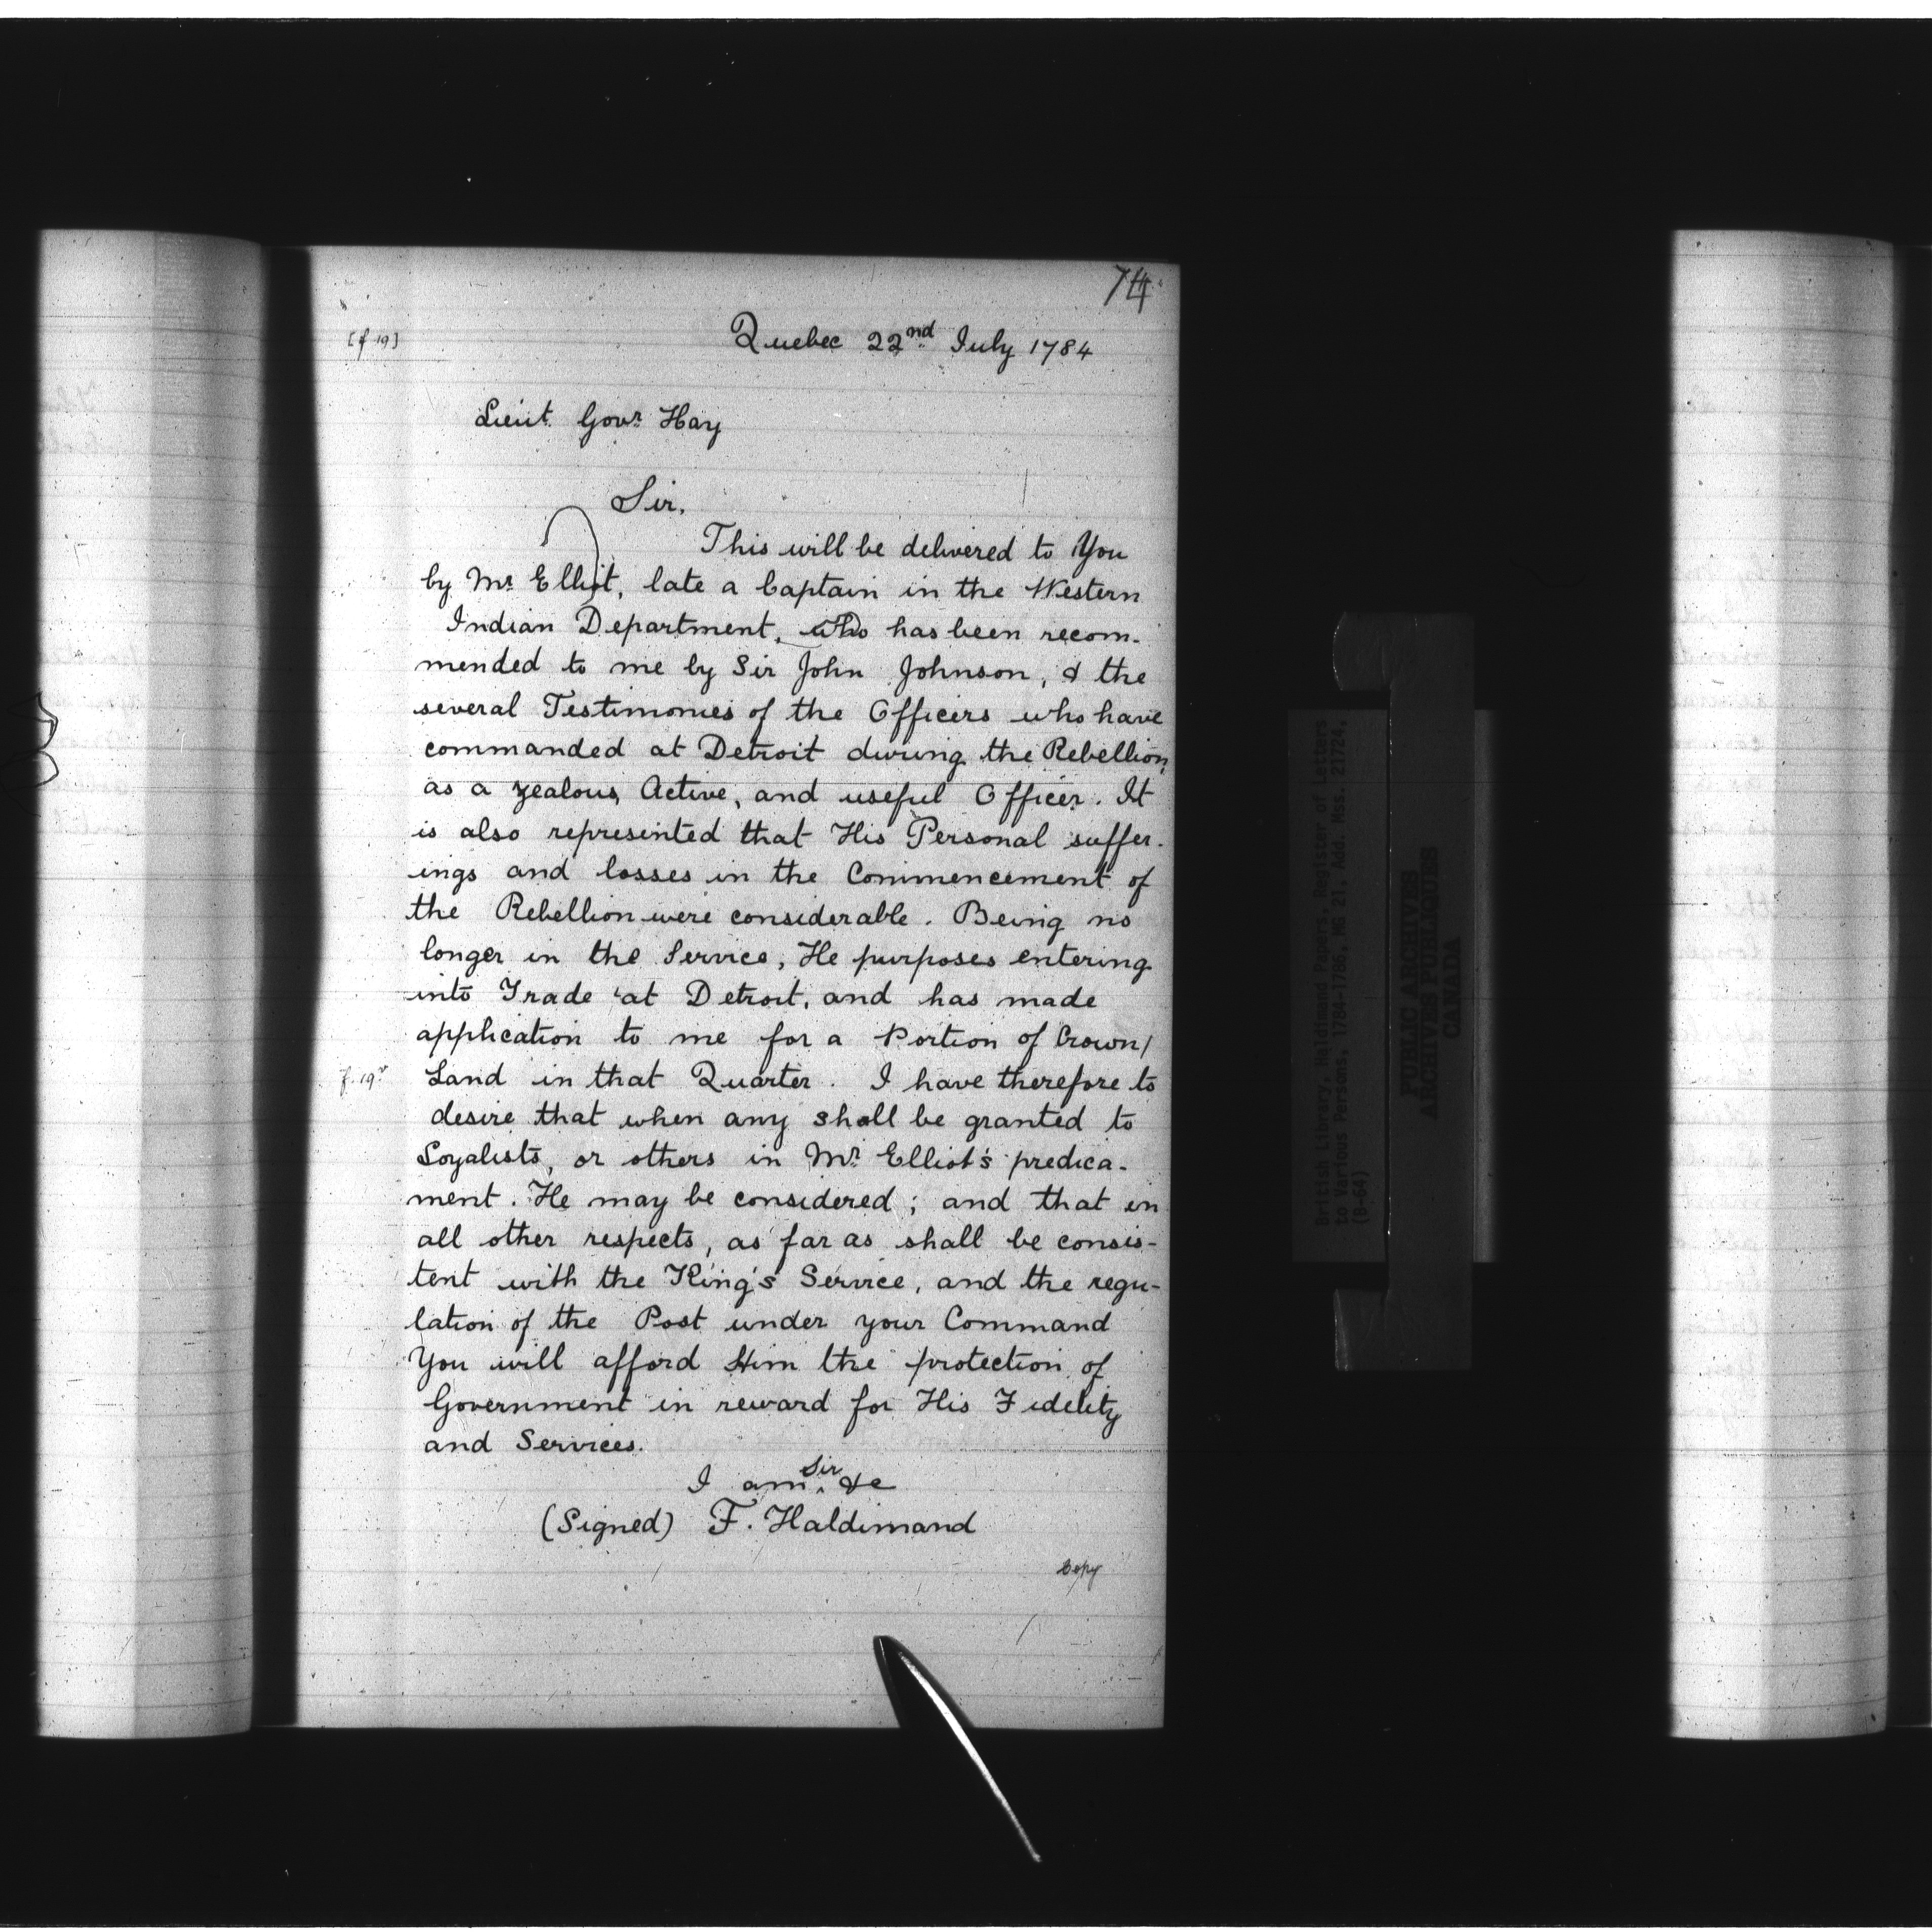 74
[f 19]
Quebec 22nd July 1784
Lieut. Govr. Hay
Sir,
This will be delivered to You
by Mr. Elliot, late a Captain in the Western
Indian Department, who has been recom-
mended to me by Sir John Johnson, & the
several Testimonies of the Officers who have
commanded at Detroit during the Rebellion,
as a zealous, Active, and useful Officer. It
is also represented that His Personal suffer-
ings and losses in the Commencement of
the Rebellion were considerable. Being no
longer in the Service, He purposes entering
into Trade at Detroit, and has made
application to me for a Portion of Crown/
f. 19v Land in that Quarter. I have therefore to
desire that when any shall be granted to
Loyalists, or others in Mr. Elliot's predica-
ment. He may be considered; and that in
all other respects, as far as shall be consis-
tent with the King's Service, and the regu-
lation of the Post under your Command
You will afford Him the protection of
Government in reward for His Fidelity
and Services.
I am, Sir &c
(Signed) F. Haldimand
Copy
British Library. Haldimand Papers. Register of Letters
to Various Persons, 1784-1786, MG 21. Add. Mss. 21724.
(B-64)
PUBLIC ARCHIVES
ARCHIVES PUBLIQUES
CANADA